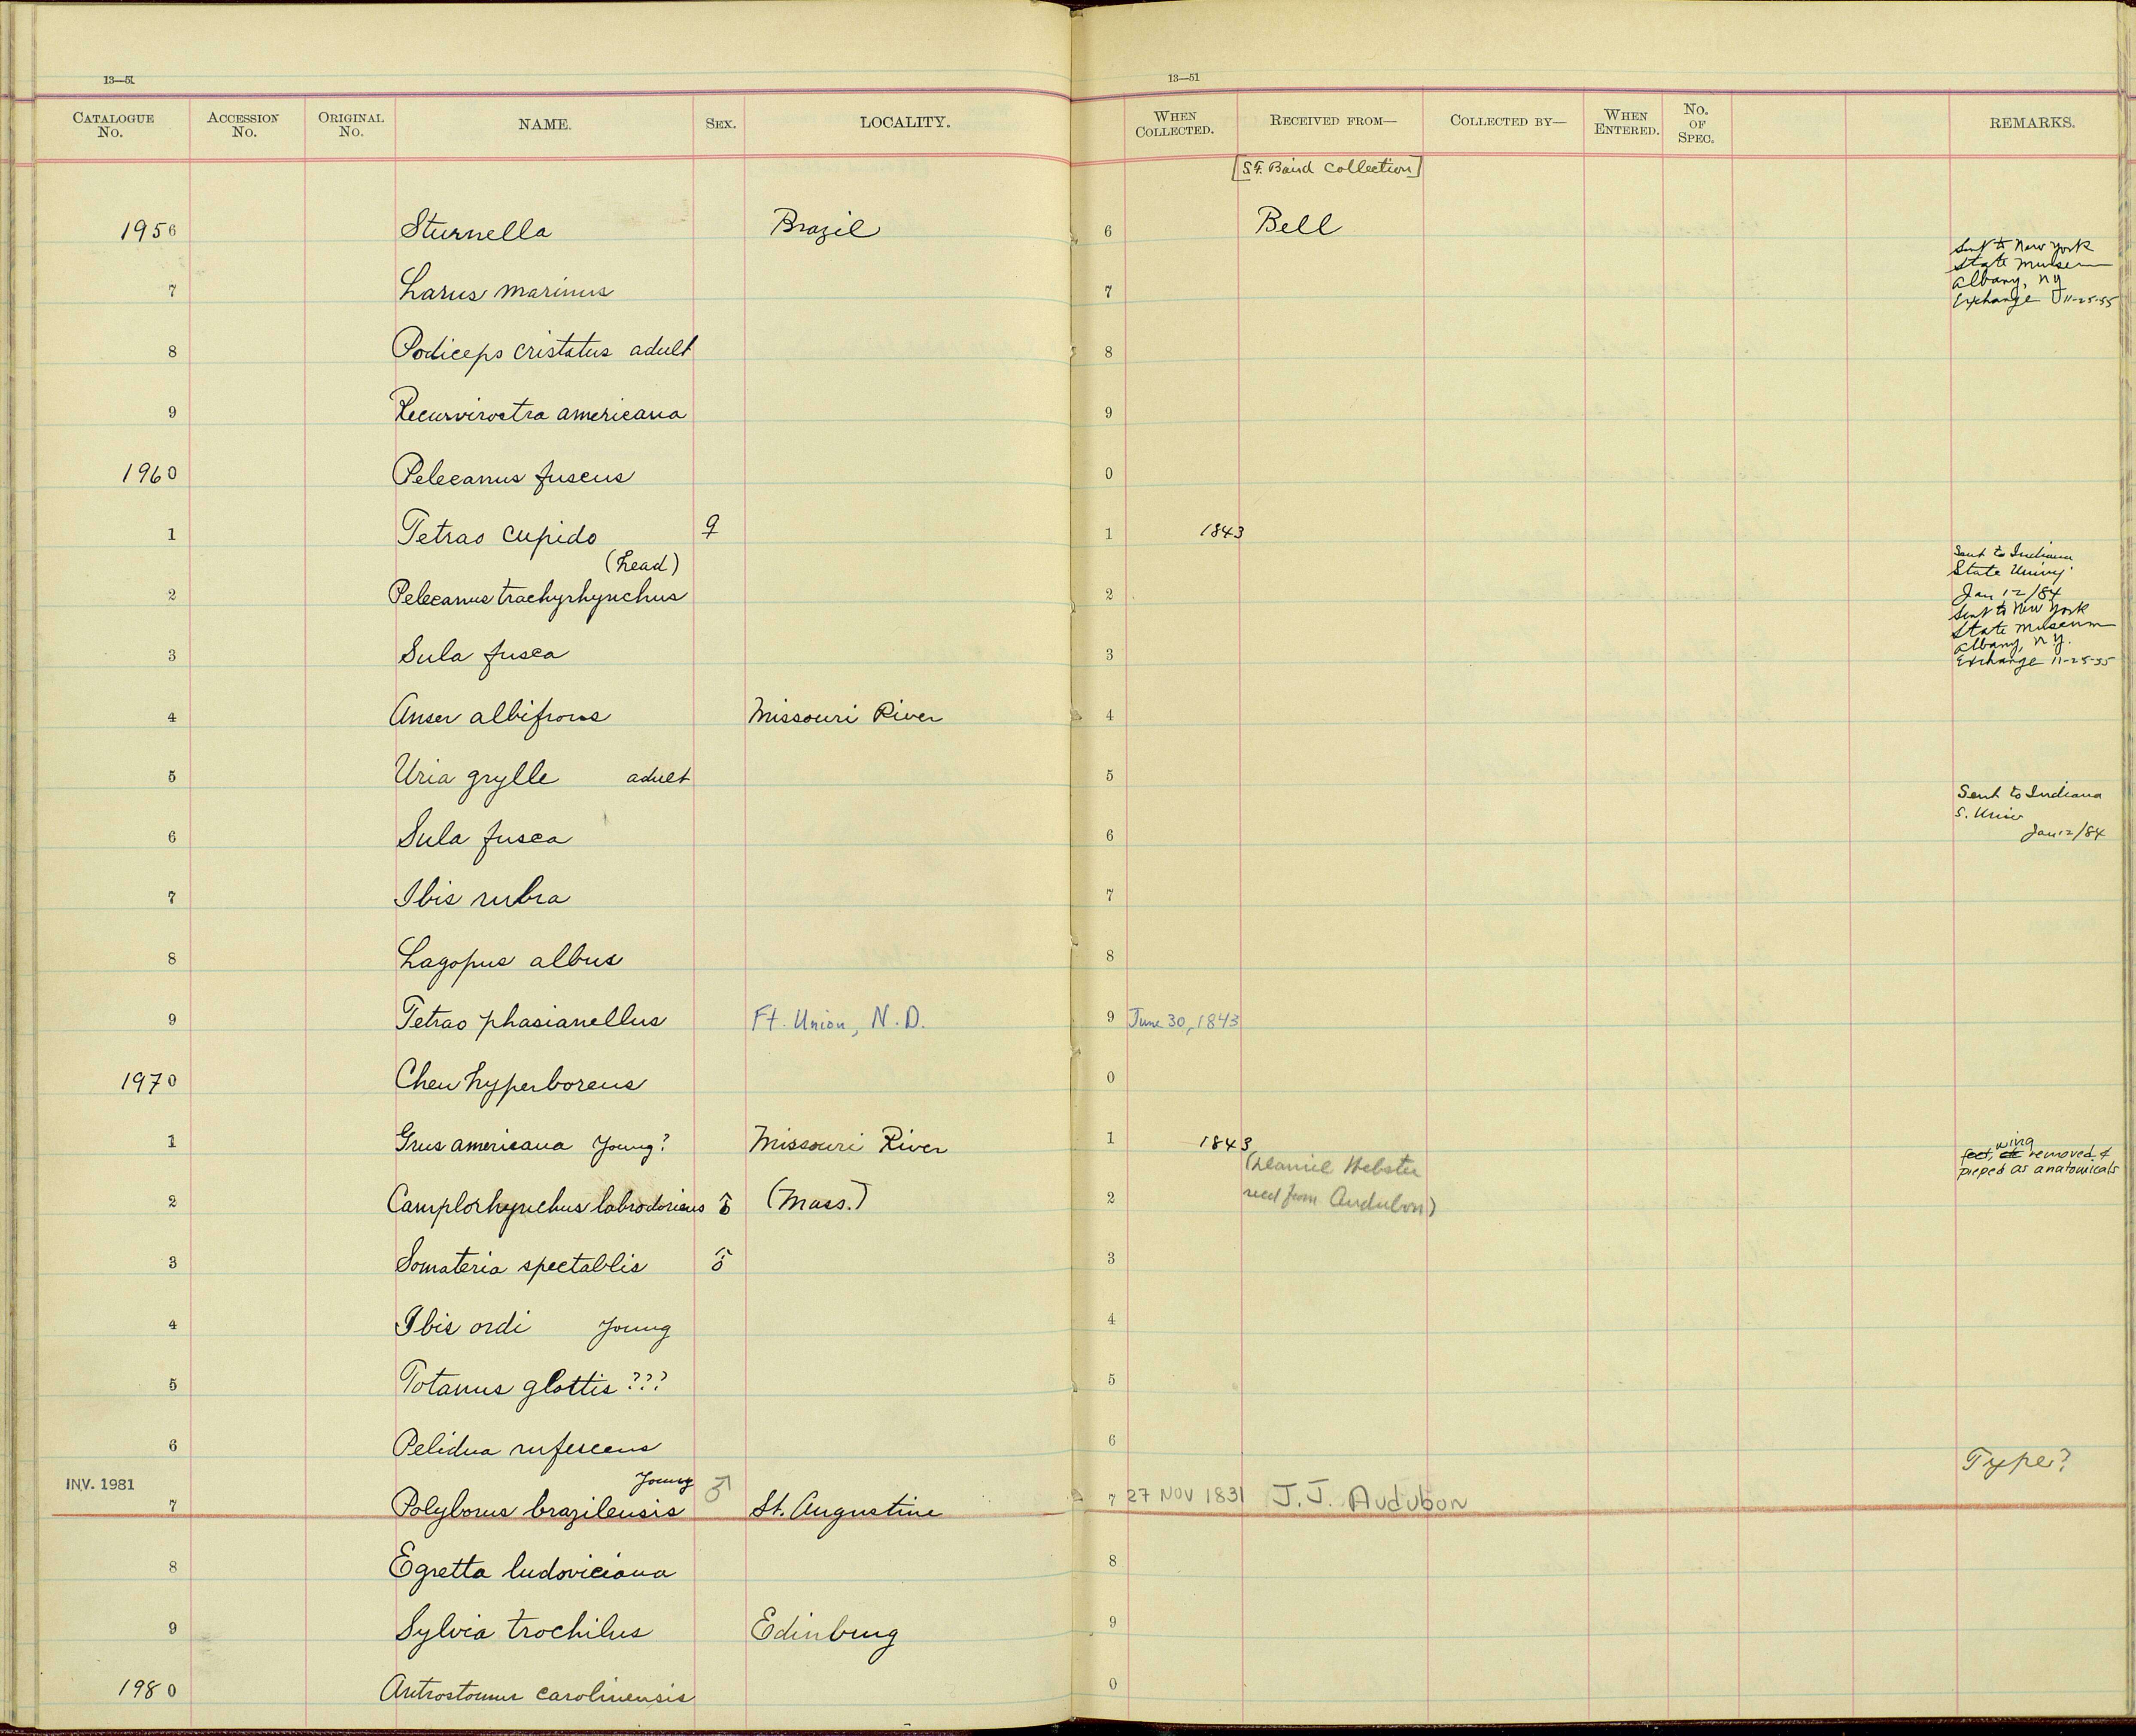 13—51 13—51
CATALOGUE No. ACCESSION No. ORIGINAL No. NAME. SEX. LOCALITY. WHEN COLLECTED. RECEIVED FROM— COLLECTED BY— WHEN ENTERED. No. OF SPEC. REMARKS.
[S.F. Baird Collection]
1956 Sturnella Brazil 6 Bell
Sent to New York
State Museum
Albany, NY
Exchange 11-25-55
7 Larus marinus 7
8 Podiceps cristatus adult 8
9 Recurvirostra americana 9
1960 Pelecanus fuscus 0
1 Tetrao cupido ♀ 1 1843
(head)
Sent to Indiana
State Univy.
Jan 12/84
2 Pelecanus trachyrhynchus 2
Sent to New York
State Museum
Albany, N.Y.
Exchange 11-25-55
3 Sula fusca 3
4 Anser albifrons Missouri River 4
5 Uria grylle adult 5
Sent to Indiana
S. Univ
Jan 12/84
6 Sula fusca 6
7 Ibis rubra 7
8 Lagopus albus 8
9 Tetrao phasianellus Ft. Union, N.D. 9 June 30, 1843
1970 Chen hyperboreus 0
1 Grus americana Young? Missouri River 1 1843
feet, wing etc removed &
preped as anatomicals
(Daniel Webster
2 Camplorhynchus labradorieus ♂ (Mass.) 2 recd from Audubon)
3 Somateria spectablis ♂ 3
4 Ibis ordi Young 4
5 Totanus glottis ??? 5
6 Pelidna rufescens 6
Type?
INV. 1981 Young
7 Polyborus brazilensis ♂ St. Augustine 7 27 NOV 1831 J.J. Audubon
8 Egretta ludoviciana 8
9 Sylvia trochilus Edinburg 9
1980 Antrostomus carolinensis 0